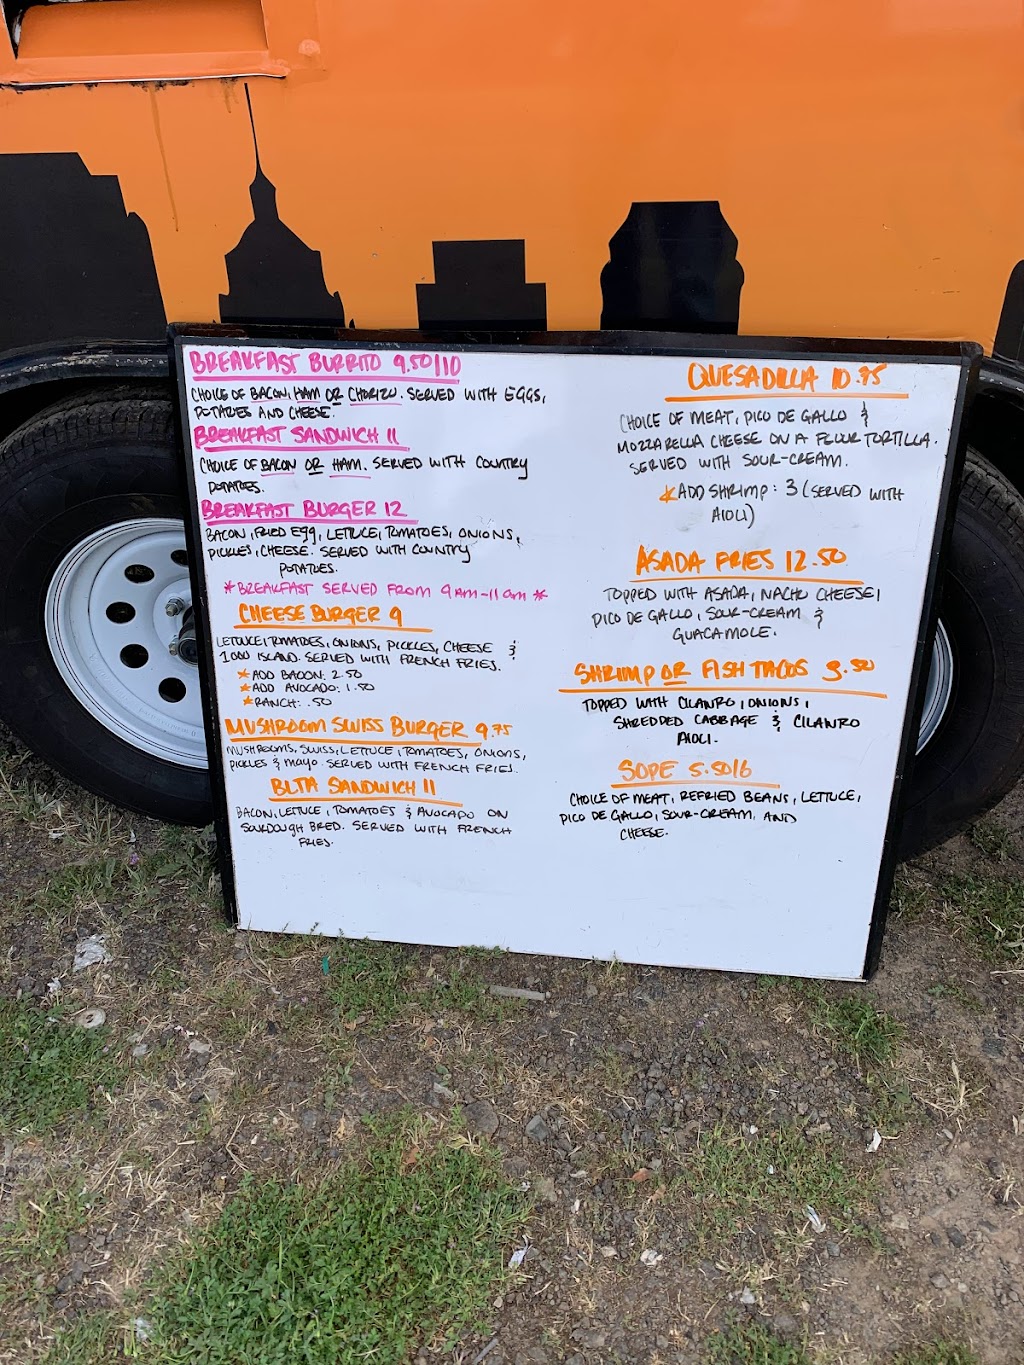 BREAKFAST BURRITO 9.50/10
CHOICE OF BACON, HAM OR CHORIZO. SERVED WITH EGGS,
POTATOES AND CHEESE.
BREAKFAST SANDWICH 11
CHOICE OF BACON OR HAM. SERVED WITH COUNTRY
POTATOES.
BREAKFAST BURGER 12
BACON, FRIED EGG, LETTUCE, TOMATOES, ONIONS,
PICKLES, CHEESE. SERVED WITH COUNTRY
POTATOES.
*BREAKFAST SERVED FROM 9AM-11am*
CHEESE BURGER 9
LETTUCE, TOMATOES, ONIONS, PICKLES, CHEESE &
1000 ISLAND. SERVED WITH FRENCH FRIES.
*ADD BACON: 2.50
*ADD AVOCADO: 1.50
*RANCH: .50
MUSHROOM SWISS BURGER 9.75
MUSHROOMS, SWISS, LETTUCE, TOMATOES, ONIONS,
PICKLES & MAYO. SERVED WITH FRENCH FRIES.
BLTA SANDWICH 11
BACON, LETUCE, TOMATOES & AVOCADO ON
SOURDOUGH BRED. SERVED WITH FRENCH
FRIES.
QUESADILLA 10.75
CHOICE OF MEAT, PICO DE GALLO &
MOZZARELLA CHEESE ON A FLOUR TORTILLA.
SERVED WITH SOUR-CREAM.
*ADD SHRIMP: 3 (SERVED WITH
AIOLI)
ASADA FRIES 12.50
TOPPED WITH ASADA, NACHO CHEESE,
PICO DE GALLO, SOUR-CREAM &
GUACAMOLE.
SHRIMP OR FISH TACOS 3.50
TOPPED WITH CILANRO, ONIONS,
SHREDDED CABBAGE & CILANRO
AIOLI.
SOPE 5.50/6
CHOICE OF MEAT, REFRIED BEANS, LETTUCE,
PICO DE GALLO, SOUR-CREAM, AND
CHEESE.